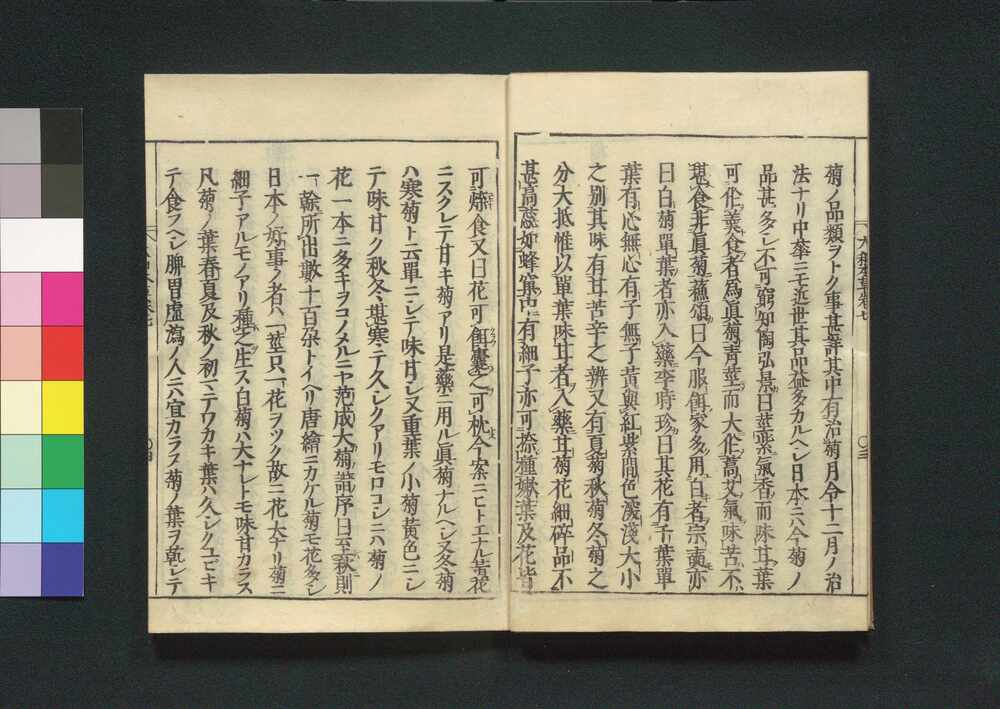 菊ノ品類ヲトク事甚詳其中有治菊月令十二月ノ治
法ナリ中華ニモ近世其品益多カルヘシ日本ニハ今菊ノ
品甚多シ不可窮知陶弘景曰莖紫氣香而味甘葉
可作羹食者為眞菊青莖而大作蒿艾氣味苦不
堪食非眞菊蘓頌曰今服餌家多用白者宗奭亦
曰白菊單葉者亦入藥李時珍曰其花有千葉單
葉有心無心有子無子黄與紅紫間色淺深大小
之別其味有甘苦辛之辨又有夏菊秋菊冬菊之
分大抵惟以單葉味甘者入藥甘菊花細碎品不
甚髙蕊如蜂窠中有細子亦可捺種嫩葉及花皆
可煠食又曰花可餌囊之可枕今案ニヒトエナル黄花
ニスクレテ甘キ菊アリ是藥ニ用ル眞菊ナルヘシ又冬菊
ハ寒菊ト云單ニシテ味甘シ又重葉ノ小菊黄色ニシ
テ味甘ク秋冬堪寒ニテ久シクアリモロコシニハ菊ノ
花一本ニ多キヲコノメルニヤ范成大菊譜序曰至秋則
一幹所出數十百朶トイヘリ唐繪ニカケル菊モ花多シ
日本ノ好事ノ者ハ一莖只一花ヲツク故ニ花大ナリ菊ニ
細子アルモノアリ種之生ス白菊ハ大ナレトモ味甘カラス
凡菊ノ葉春夏及秋ノ初マテワカキ葉ハ久シクユビキ
テ食フヘシ脾胃虛瀉ノ人ニハ宜カラス菊ノ葉ヲ乾シテ